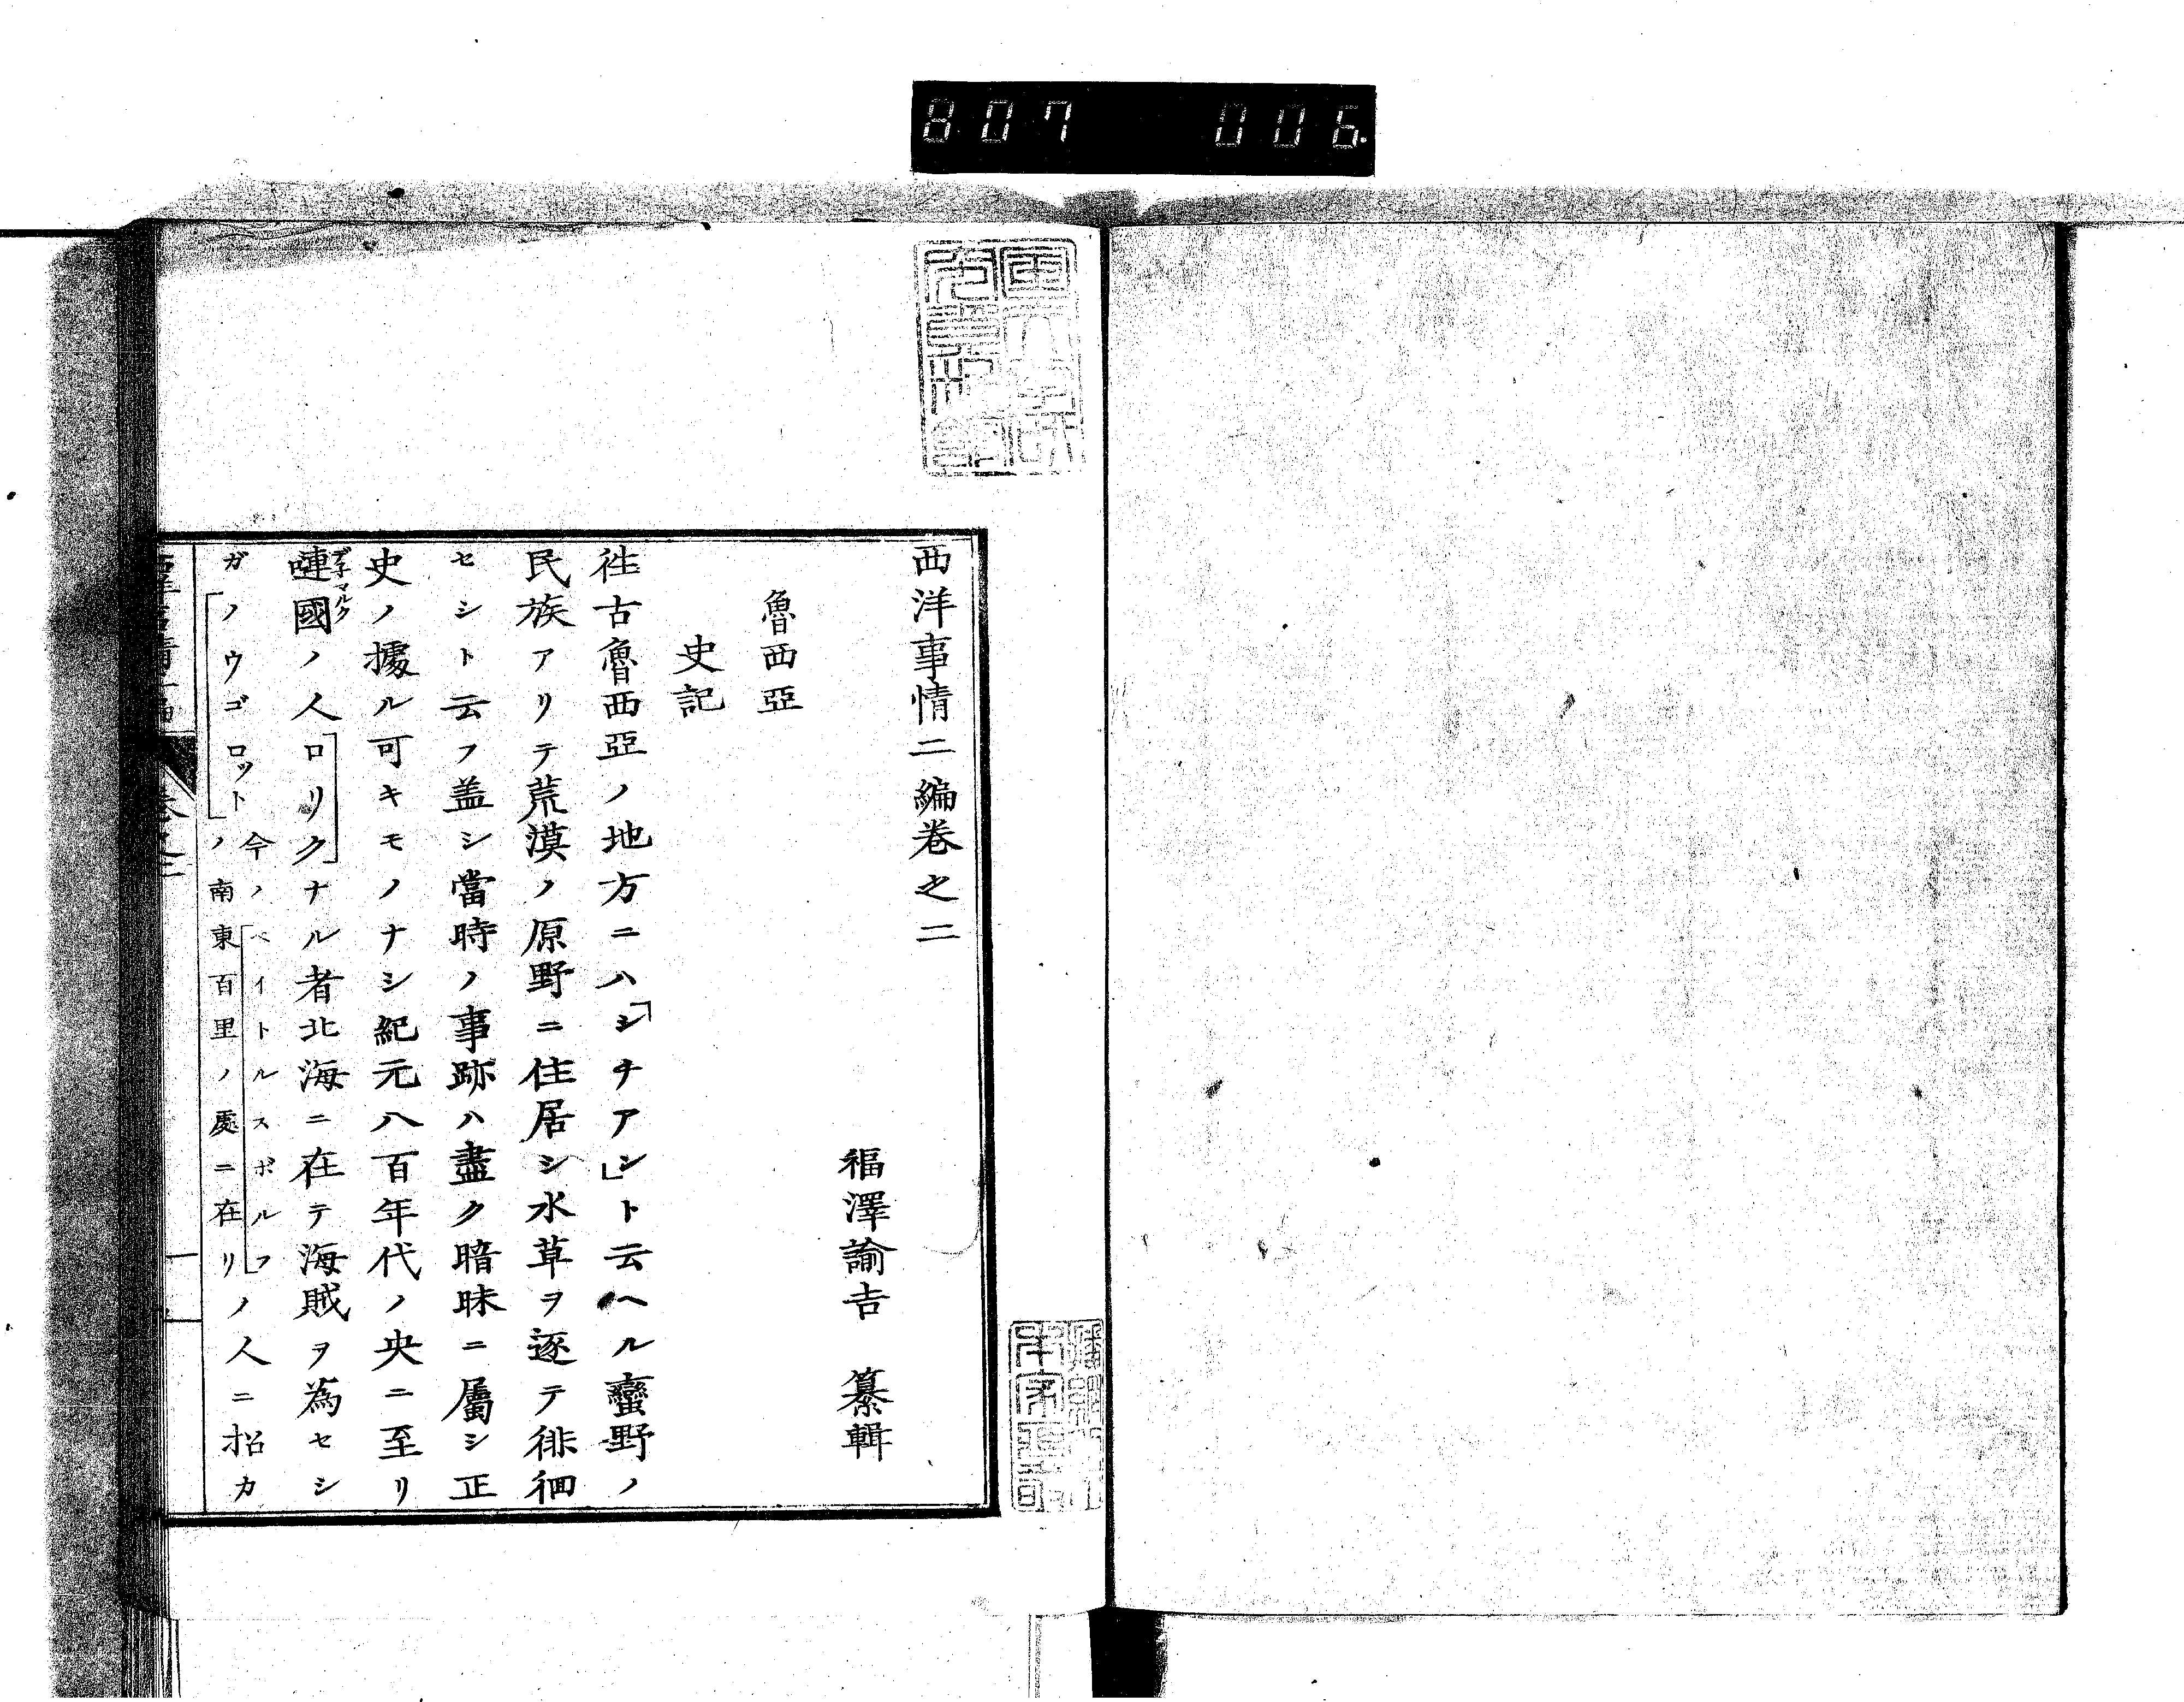 807 006
西洋事情二編卷之二
福澤諭吉 纂輯
魯西亞
史記
徃古魯西亞ノ地方ニハ「シチアン」ト云ヘル蠻野ノ
民族アリテ荒漠ノ原野ニ住居シ水草ヲ逐テ徘徊
セシト云フ盖シ當時ノ事跡ハ盡ク暗昧ニ屬シ正
史ノ據ル可キモノナシ紀元八百年代ノ央ニ至リ
嗹國ノ人「ロリク」ナル者北海ニ在テ海賊ヲ為セシ
デネマルク
ガ「ノウゴロット」今ノ「ペイトルスボルフ」ノ南東百里ノ處ニ在リノ人ニ招カ